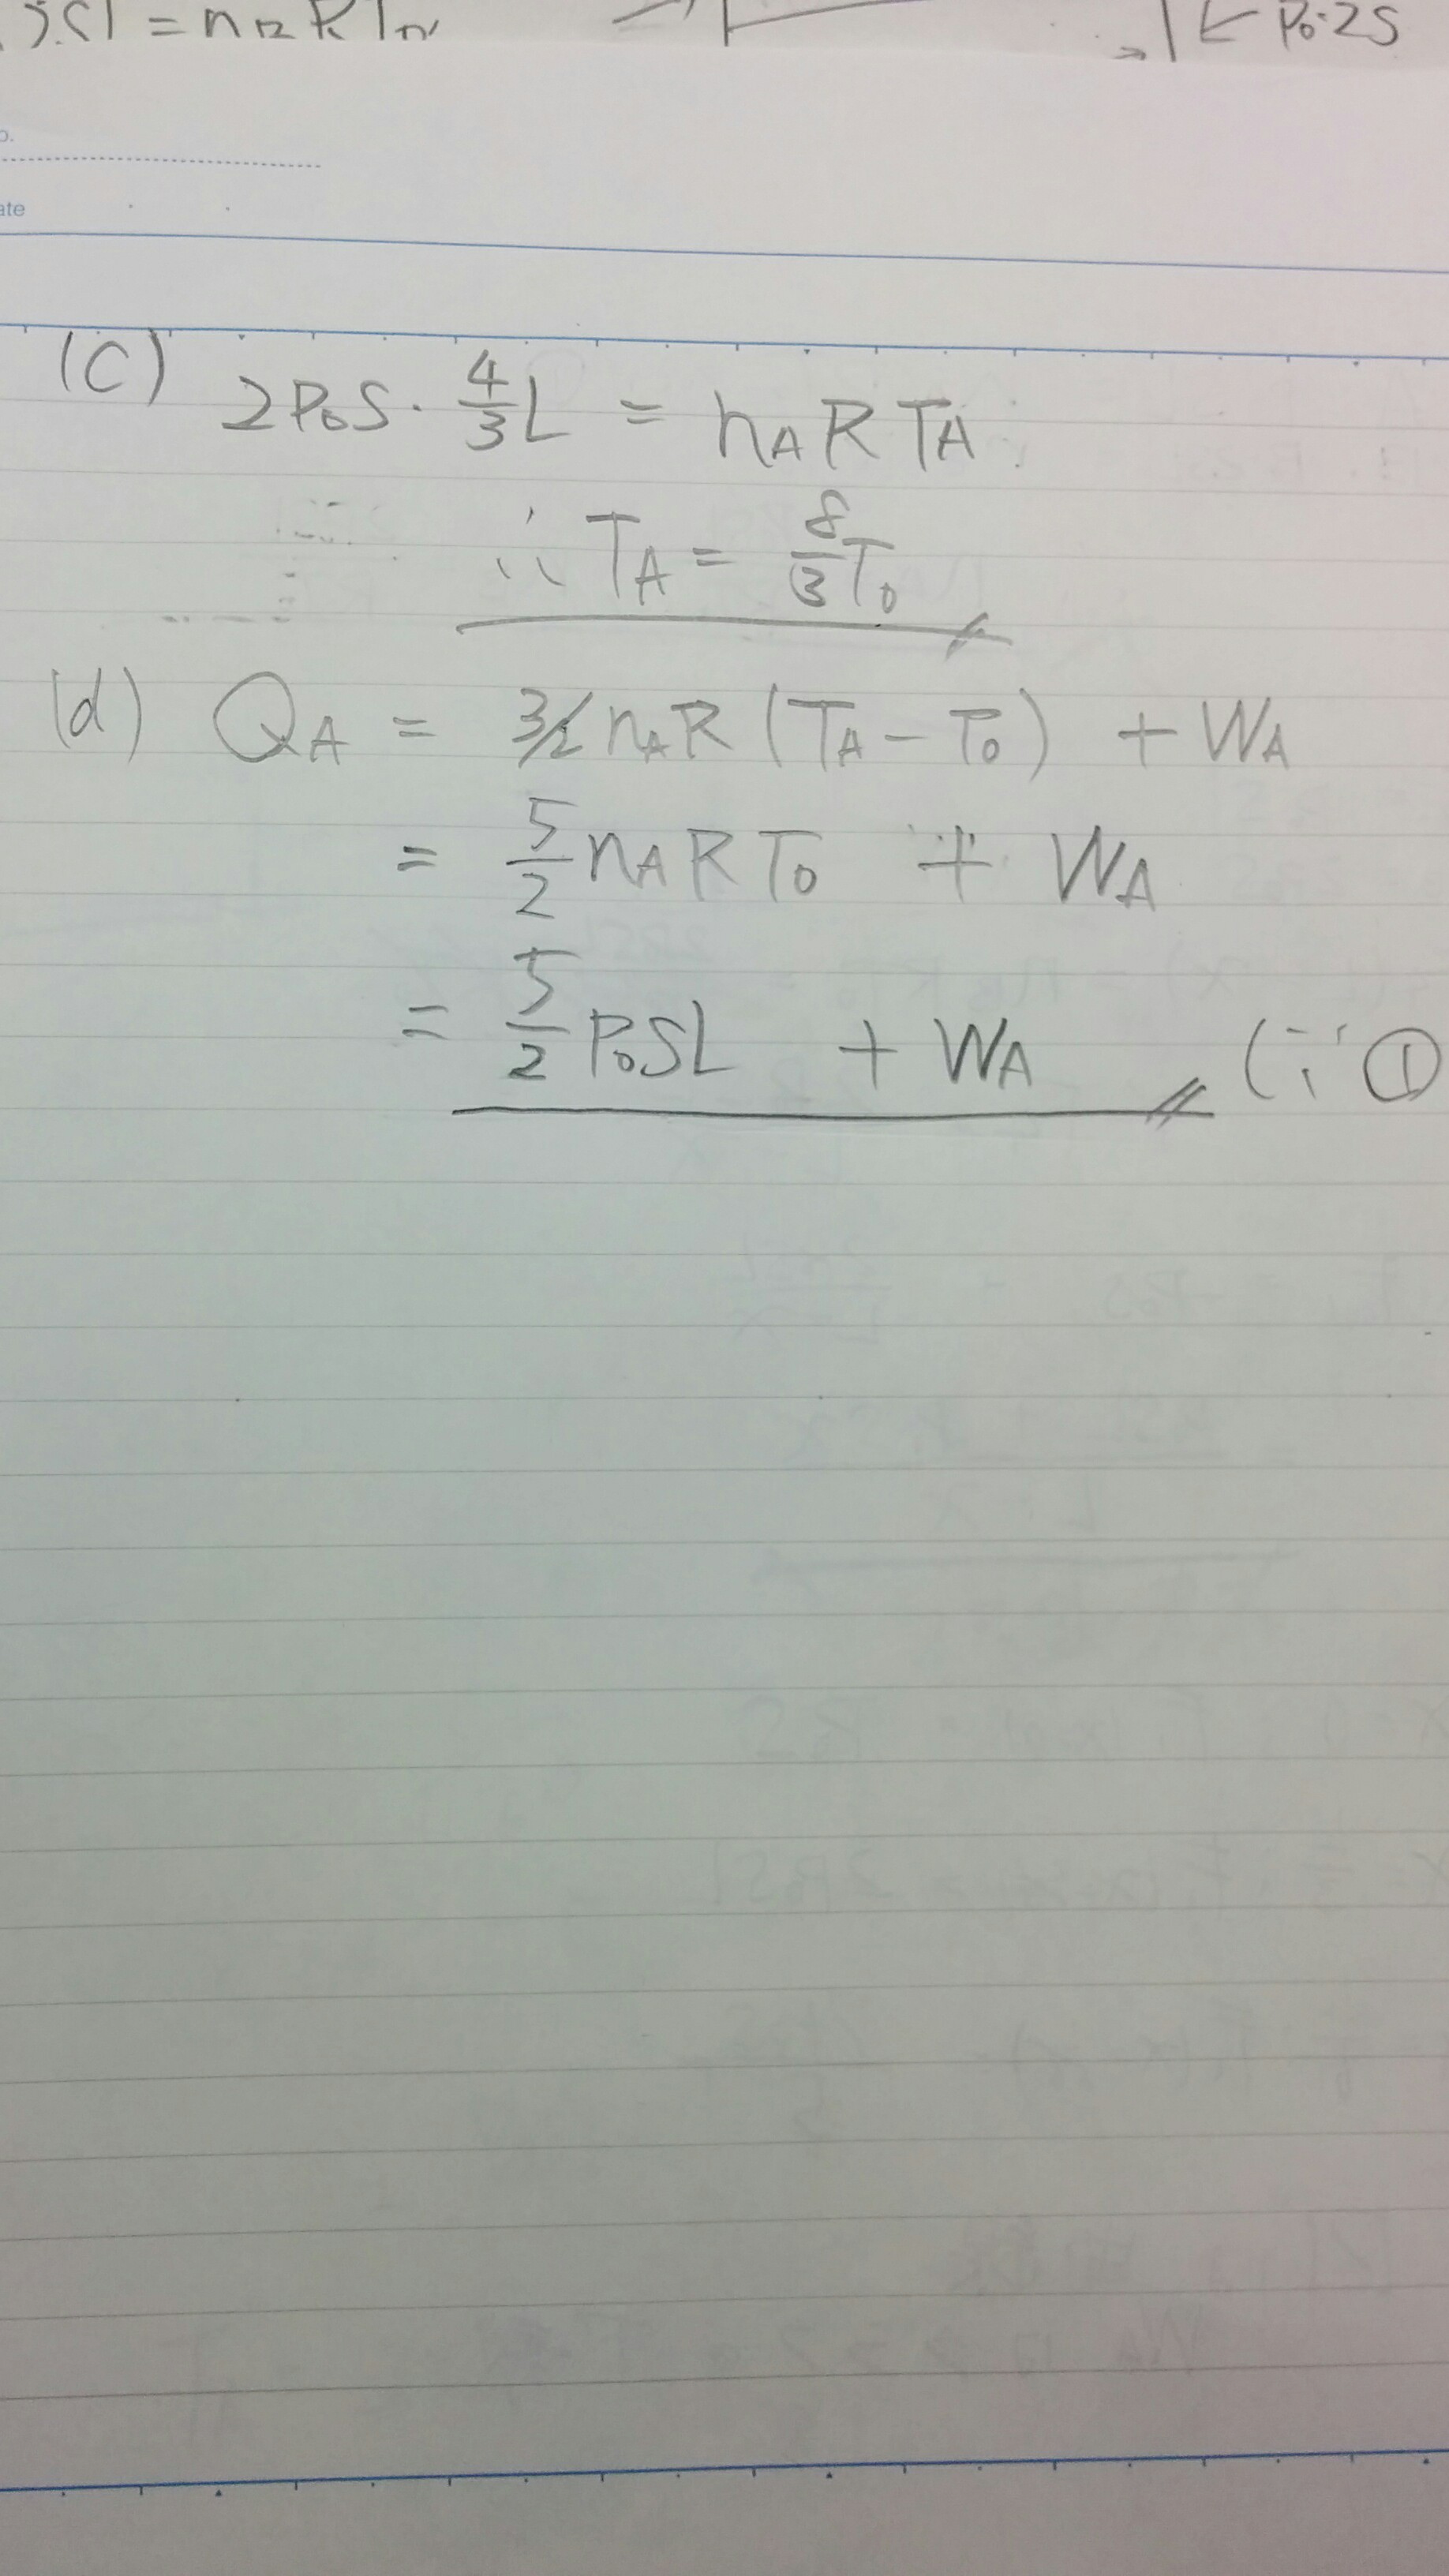 P₀·2S
(c) 2P₀S·4/3L = nA R TA
∴ TA = 8/3T₀
(d) QA = 3/2 nA R (TA − T₀) + WA
= 5/2 nA R T₀ + WA
= 5/2 P₀SL + WA (∵ ①